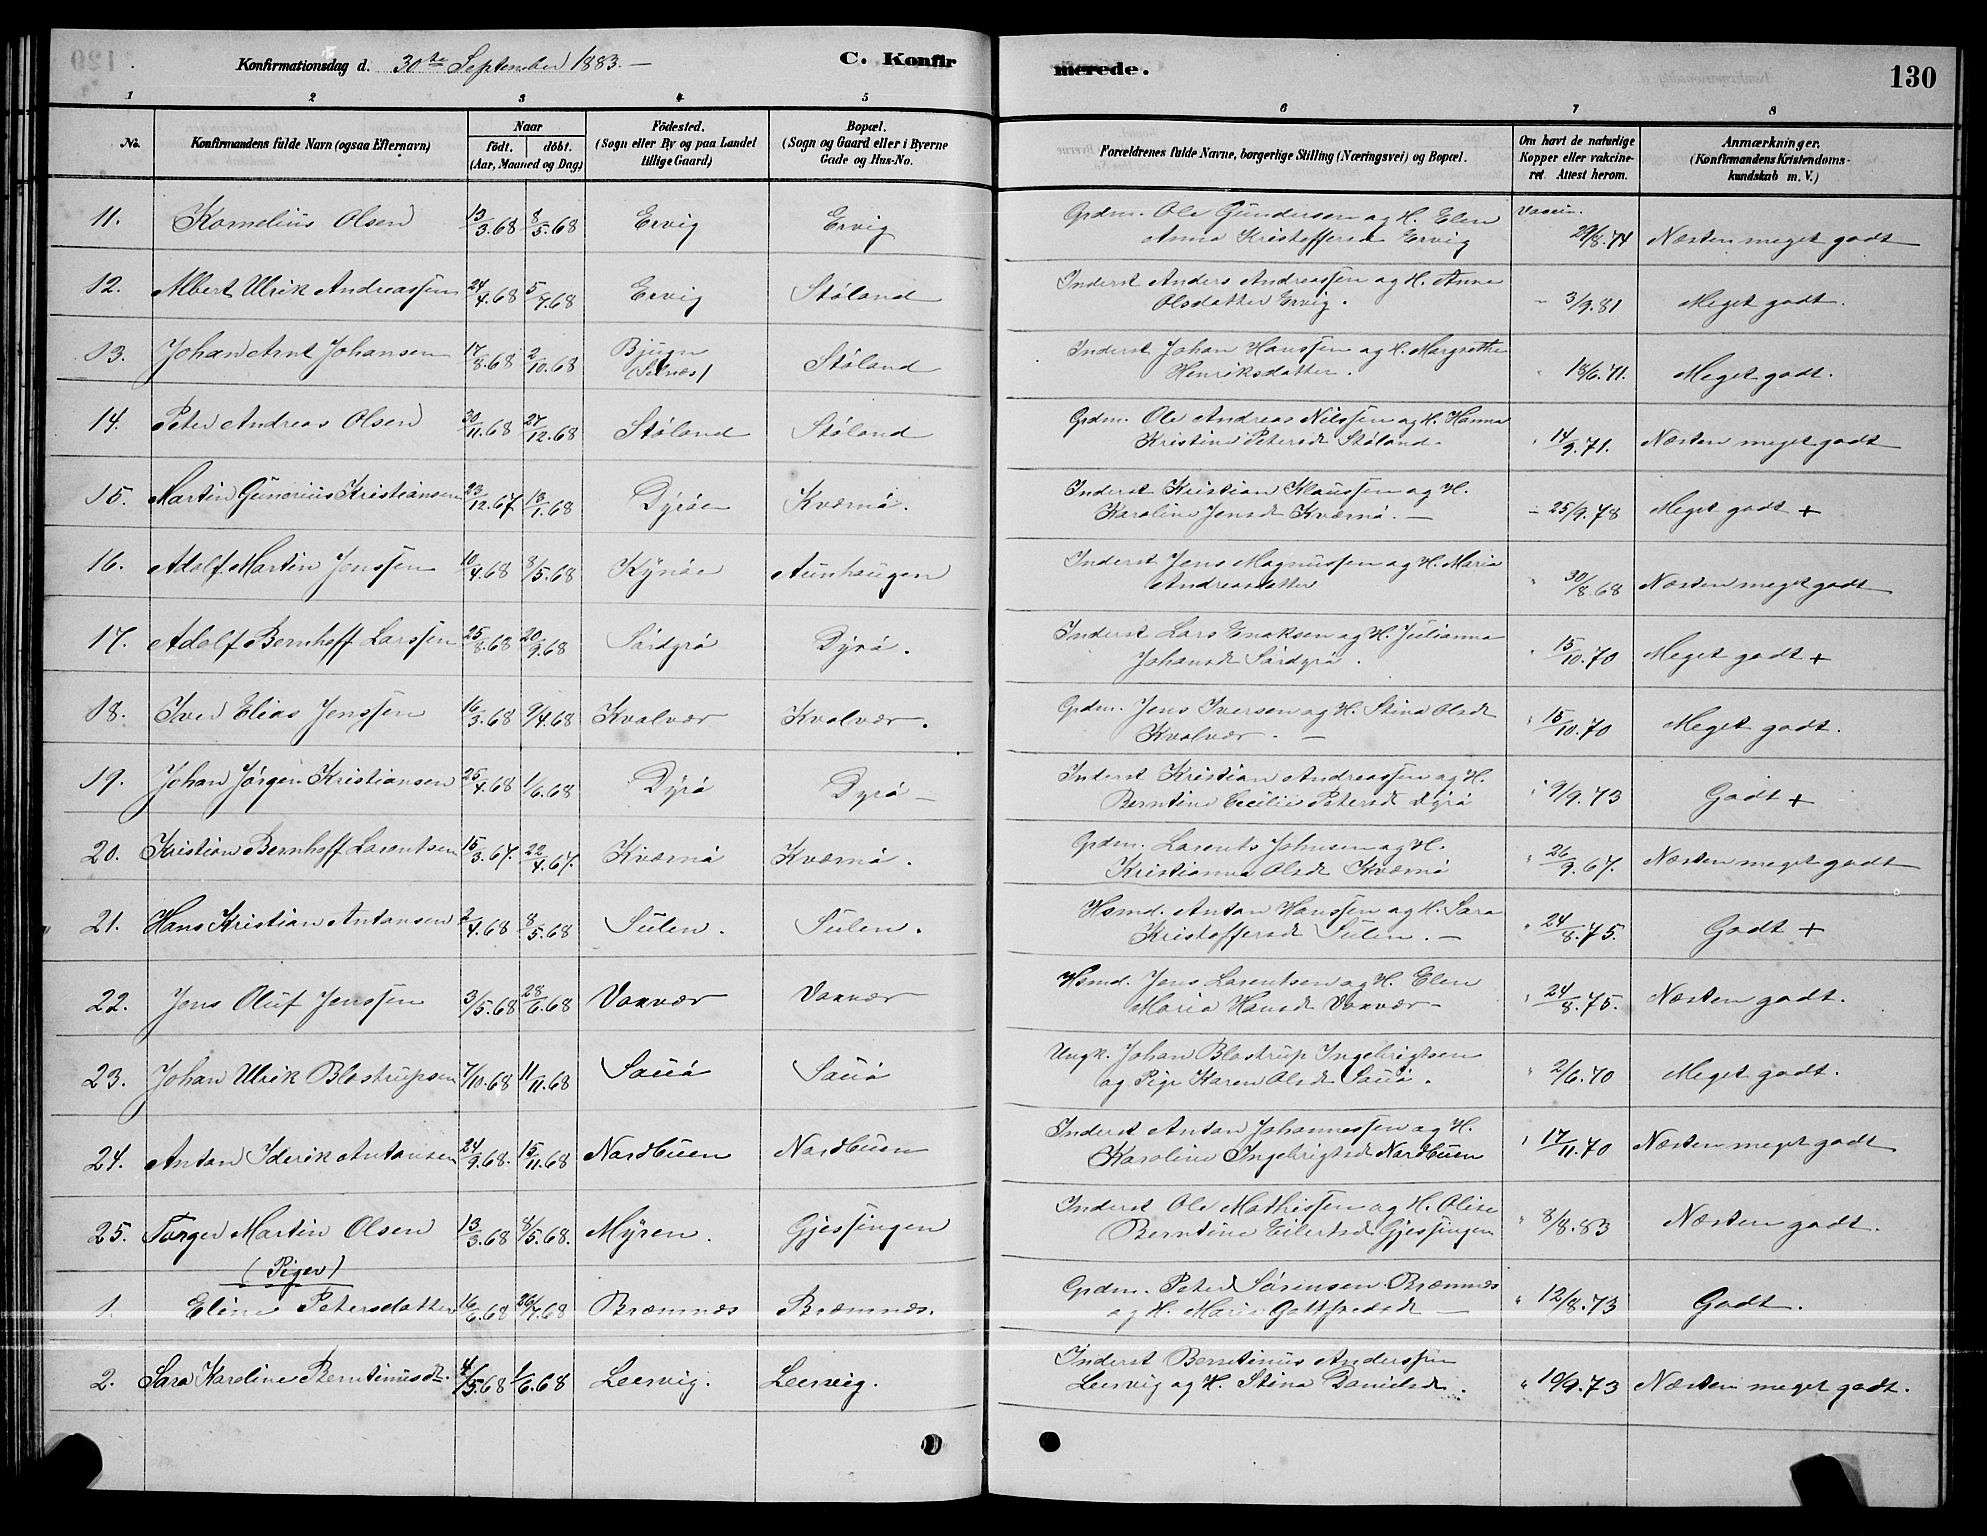 Konfirmationsdag d. 30te September 1883. — C. Konfirmerede. 130
1 2 3 4 5 6 7 8
No. Konfirmandens fulde Navn (ogsaa Efternavn) Naar født. døbt. (Aar, Maaned og Dag) Fødested. (Sogn eller By og paa Landet tillige Gaard) Bopæl. (Sogn og Gaard eller i Byerne Gade og Hus-No. Forældrenes fulde Navne, borgerlige Stilling (Næringsvei) og Bopæl. Om havt de naturlige Kopper eller vakcineret. Attest herom. Anmærkninger. (Konfirmandens Kristendomskundskab m. V.)
11. Kornelius Olsen 13/3.68 8/5.68 Ervig Ervig Grdm. Ole Gundersen og H. Elen Vaccin.
Anna Kristoffersd Ervig 29/8.74 Næsten meget godt
12. Albert Ulrik Andreassen 24/4.68 5/7.68 Ervig Støland Inderst Anders Andreassen og H. Anne
Olsdatter Ervig. " 3/9.81 Meget godt.
13. Johan Arnt Johansen 17/8.68 2/10.68 Bjugn (Selnæs) Støland Inderst Johan Hanssen og H. Margrethe
Henriksdatter. " 18/6.71. Meget godt.
14. Peter Andreas Olsen 30/11.68 27/12.68 Støland Støland Grdm. Ole Andreas Nilssen og H. Hanna
Kristine Petersd Støland. " 14/9.71. Næsten meget godt
15. Martin Gunerius Kristiansen 23/12.67 13/1.68 Dyrøe Kværnø. Inderst Kristian Klaussen og H.
Karoline Jensd Kværnø. — " 25/9.78 Meget godt +
16. Adolf Martin Jenssen 10/4.68 8/5.68 Kynøe Aunhaugen Inderst Jens Magnussen og H. Maria
Andreasdatter " 30/8.68 Næsten meget godt
17. Adolf Bernhoff Larssen 25/8.68 20/9.68 Sørdyrø Dyrø. Inderst Lars Enoksen og H. Julianna
Johansd Sørdyrø. " 15/10.70 Meget godt +
18. Iver Elias Jenssen 16/3.68 9/4.68 Kvalvær Kvalvær. Grdm. Jens Iversen og H. Stina Olsd
Kvalvær. — " 15/10.70 Meget godt.
19. Johan Jørgen Kristiansen 25/4.68 1/6.68 Dyrø Dyrø — Inderst Kristian Andreassen og H.
Berntine Cecilie Petersd Dyrø " 9/9.73 Godt +
20. Kristian Bernhoff Larentsen 15/3.67. 22/4.67. Kværnø Kværnø. Grdm. Larents Johnsen og H.
Kristianna Olsd Kværnø " 26/9.67. Næsten meget godt
21. Hans Kristian Antonsen 2/4.68 8/5.68 Sulen. Sulen. Hsmd. Anton Hanssen og H. Sara
Kristoffersd Sulen. — " 24/8.75. Godt +
22. Jens Oluf Jenssen 3/5.68 28/6.68 Vaxvær Vaxvær Hsmd. Jens Larentsen og H. Elen
Maria Hansd Vaxvær — " 24/8.75. Næsten godt.
23. Johan Ulrik Blostrupsen 7/10.68 11/11.68 Sauø Sauø Ungk. Johan Blostrup Ingebrigtsen
og Pige Karen Olsd Sauø. " 2/6.70 Meget godt.
24. Anton Iderik Antonsen 24/9.68. 15/11.68 Nordbuen Nordbuen Inderst Anton Johannessen og H.
Karoline Ingebrigtsd Nordbuen " 17/11.70 Næsten meget godt
25. Torger Martin Olsen 13/3.68 8/5.68. Myren. Gjessingen Inderst Ole Mathissen og H. Olise
Berntine Eilertsd Gjessingen " 8/8.83 Næsten godt.
(Piger)
1. Eline Petersdatter 16/6.68 26/7.68 Bræmnes Bræmnes. Grdm. Peter Sørensen Bræmnes
og H. Marie Gottfredsd — " 12/8.73 Godt.
2. Sara Karoline Berntinusdt. 4/5.68 1/6.68 Leervig. Leervig. Inderst Berntinus Anderssen
Leervig og H. Stina Danielsd. " 10/9.73 Næsten meget godt.